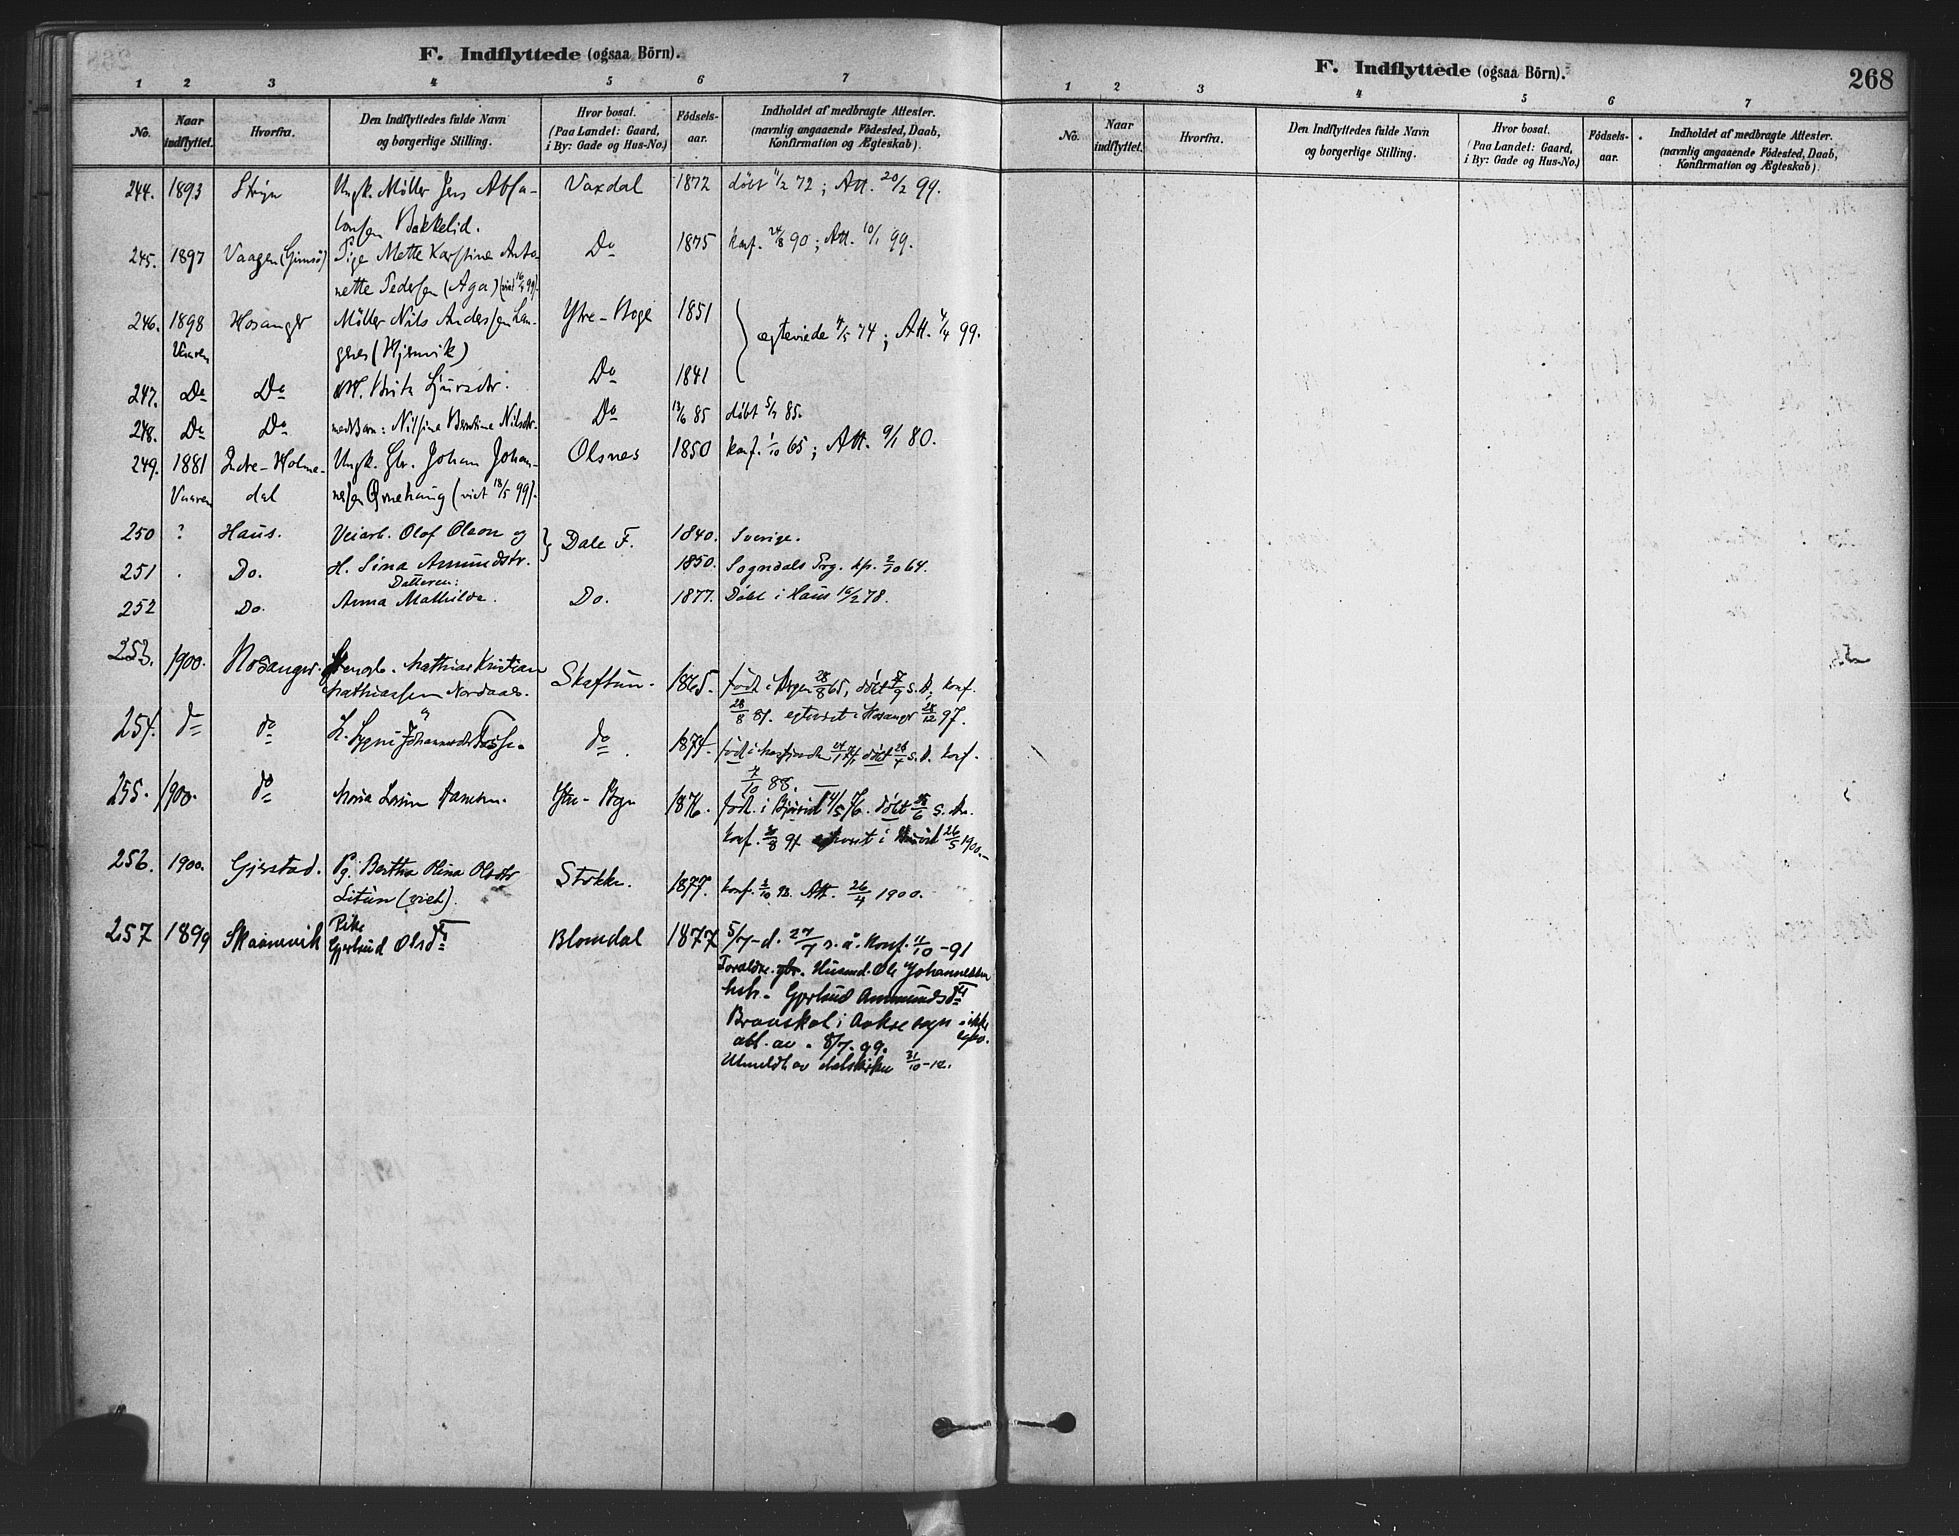 F. Indflyttede (ogsaa Börn).
1 2 3 4 5 6 7
No. Naar indflyttet. Hvorfra. Den Indflyttedes fulde Navn og borgerlige Stilling. Hvor bosat. (Paa Landet: Gaard, i By: Gade og Hus-No.) Födsels-aar. Indholdet af medbragte Attester. (navnlig angaaende Födested, Daab, Konfirmation og Ægteskab).
244. 1893 Stryn Ungk. Möller Jens Absa- Vaxdal 1872 døbt 11/2 72; Att. 20/2 99.
lonsen Bakkelid.
245. 1897 Vaagen (Gimsö) Pige Mette Karstine Anto- Do 1875 konf. 24/8 90; Att. 10/1 99.
nette Pedersen (Aga) (viet 16/4 99).
246. 1898 Hosanger Möller Nils Andersen Lan- Ytre-Boge 1851 ægteviede 4/5 74; Att. 4/4 99.
Vaaren geres (Hjemvik)
247. Do Do H. Brita Sjursdr. Do 1841
248. Do Do med Barn: Nilsine Berntine Nilsdr. Do 13/6 85 døbt 5/7 85.
249. 1881 Indre-Holme- Ungk. Gbr. Johan Johan- Olsnes 1850 konf. 1/10 65; Att. 9/1 80.
Vaaren dal nesen Qvnehaug (viet 18/5 99).
250 ? Haus. Veiarb. Olof Olson og Dale F. 1840. Sverige.
251 . Do. H. Sina Amundstr. 1850. Sogndals Prg. kp. 2/10 64.
Datteren:
252 Do. Anna Mathilde. Do. 1877. Döbt i Haus 10/2 78.
253. 1900. Hosanger. Mathias Kristian Skaftun. 1865. født i Bergen 28/8 65, døbt s. A; konf.
Mathiassen Nordaas. 28/8 81. egteviet i Hosanger 28/12 97.
254. do do H. Sygni Johannesdtr do 1874. født i 24/1 74, døbt 26/4 s. A. konf.
4/10 88.
255. 1900. do Maria Lovise Hansen. Ytre-Boge 1876. født i 14/5 76. døbt 25/6 s. A.
konf. 91 egteviet i 26/5 1900.
256. 1900. Gjerstad. Pg. Bertha Olina Olsdtr Stokke. 1877. konf. 2/10 92. Att. 26/4 1900.
Litun (viet).
257 1899 Skaanevik Pike Blomdal 1877 5/7-d. 27/7 s.å. Konf. 11/10-91
Gjertrud Olsdtr
Foraldre. gbr. Husmd. Ole Johannessen
hstr. Gjertrud Ammundsdtr
i Aakre sogn ikke
att. av. 8/7.99.
Utmeldt av statskirken 31/10-12.
F. Indflyttede (ogsaa Börn).
268
1 2 3 4 5 6 7
No. Naar indflyttet. Hvorfra. Den Indflyttedes fulde Navn og borgerlige Stilling. Hvor bosat. (Paa Landet: Gaard, i By: Gade og Hus-No.) Födsels-aar. Indholdet af medbragte Attester. (navnlig angaaende Födested, Daab, Konfirmation og Ægteskab).